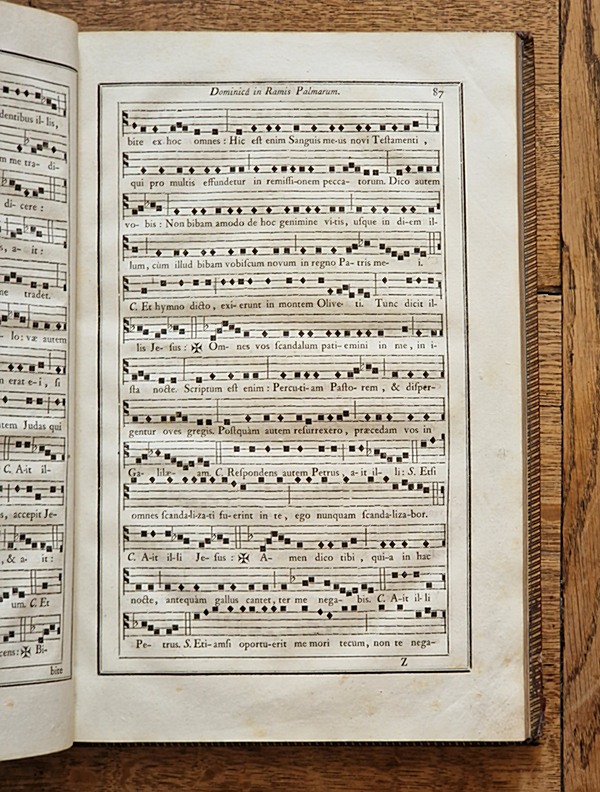 dentibus il- lis,
m me tra- di-
di- cere :
s, a- it :
me tradet.
lo: væ autem
n erat e-i, ſi
ntem Judas qui
C. A-it il-
s, accepit Je-
, & a- it :
um. C. Et
cens: ✠ Bi-
bite
Dominicâ in Ramis Palmarum. 87
bite ex hoc omnes : Hic eſt enim Sanguis me-us novi Teſtamenti ,
qui pro multis effundetur in remiſſi-onem pecca- torum. Dico autem
vo- bis : Non bibam amodo de hoc genimine vi-tis, uſque in di-em il-
lum, cùm illud bibam vobiſcum novum in regno Pa- tris me- i.
C. Et hymno dicto, exi- erunt in montem Olive- ti. Tunc dicit il-
lis Je- ſus : ✠ Om- nes vos ſcandalum pati- emini in me , in i-
ſta nocte. Scriptum eſt enim : Percu-ti-am Paſto- rem , & diſper-
gentur oves gregis. Poſtquàm autem reſurrexero , præcedam vos in
Ga- lilæ- am. C. Reſpondens autem Petrus, a-it il- li : S. Etſi
omnes ſcanda-li-za-ti fu-erint in te , ego nunquam ſcanda-liza-bor.
C. A-it il-li Je- ſus : ✠ A- men dico tibi , qui-a in hac
nocte, antequàm gallus cantet, ter me nega- bis. C. A-it il-li
Pe- trus. S. Eti- amſi oportu-erit me mori tecum, non te nega-
Z